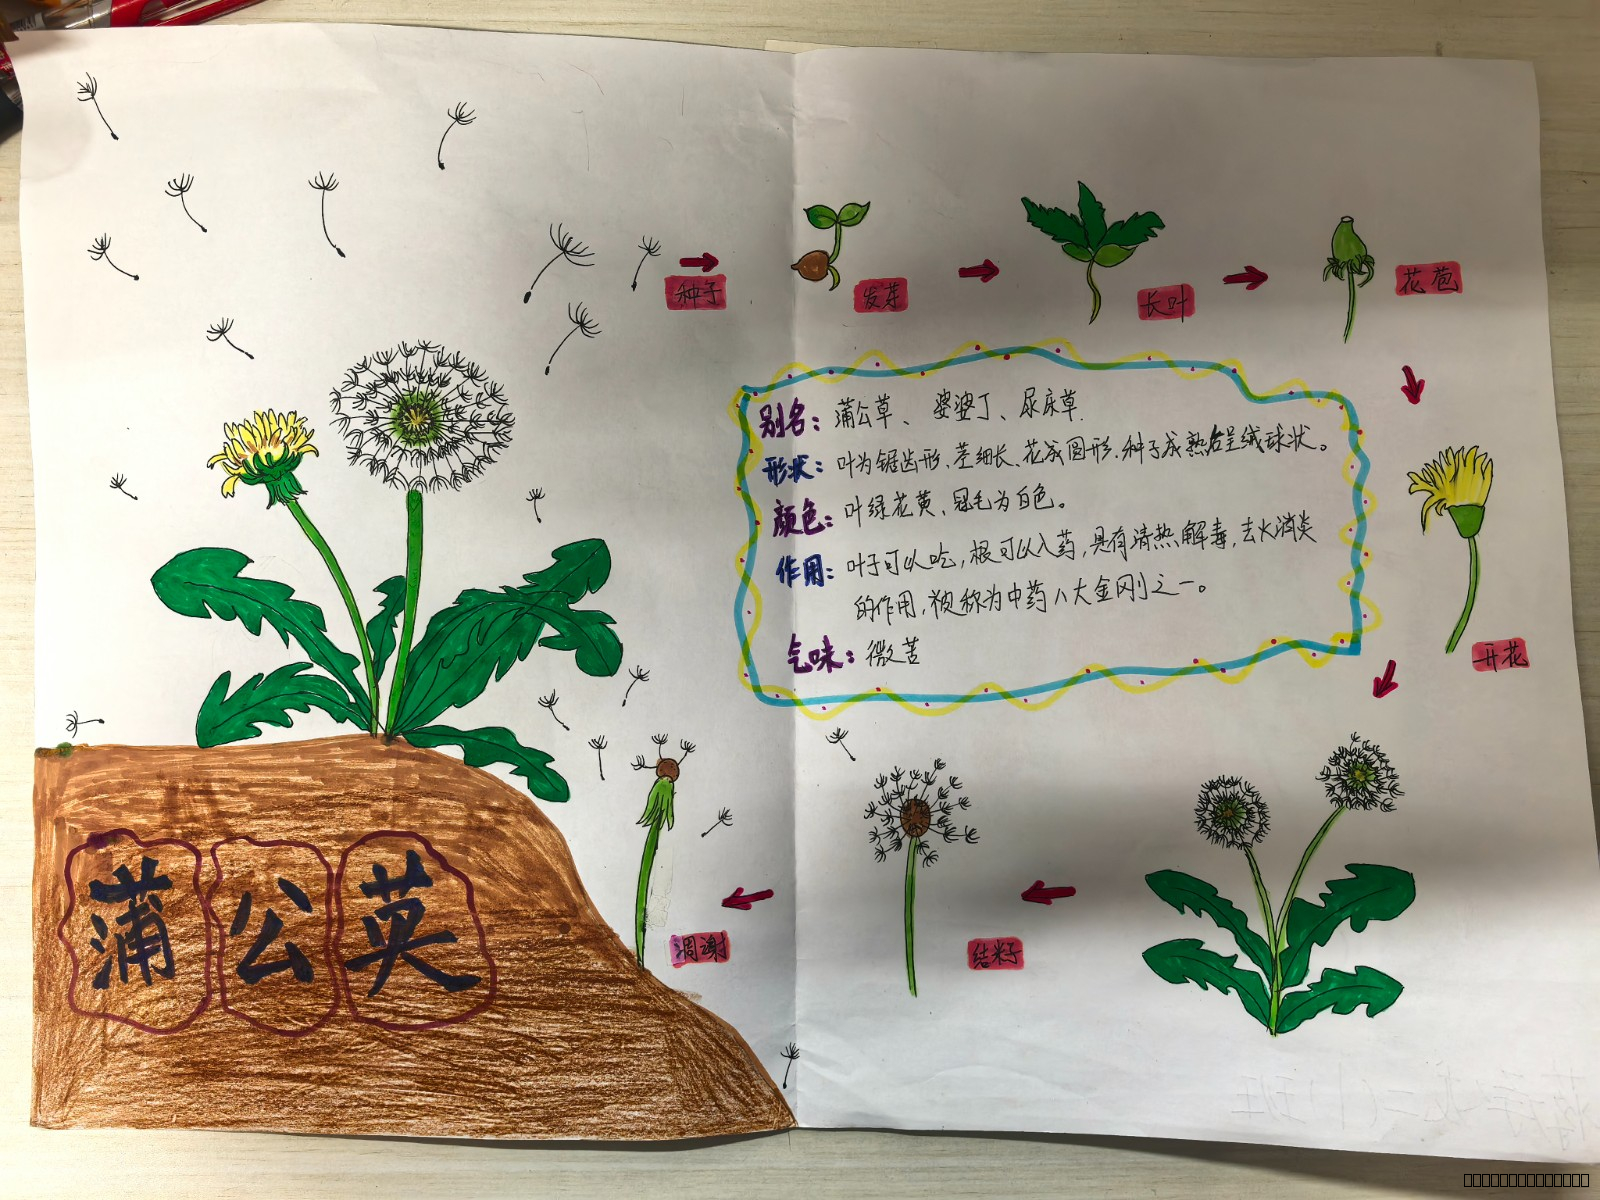 种子
发芽
长叶
花苞
别名：蒲公草、婆婆丁、尿床草.
形状：叶为锯齿形、茎细长、花成圆形、种子成熟后呈绒球状。
颜色：叶绿花黄、冠毛为白色。
作用：叶子可以吃，根可以入药，具有清热解毒，去火消炎
的作用，被称为中药八大金刚之一。
气味：微苦
开花
结籽
凋谢
蒲公英